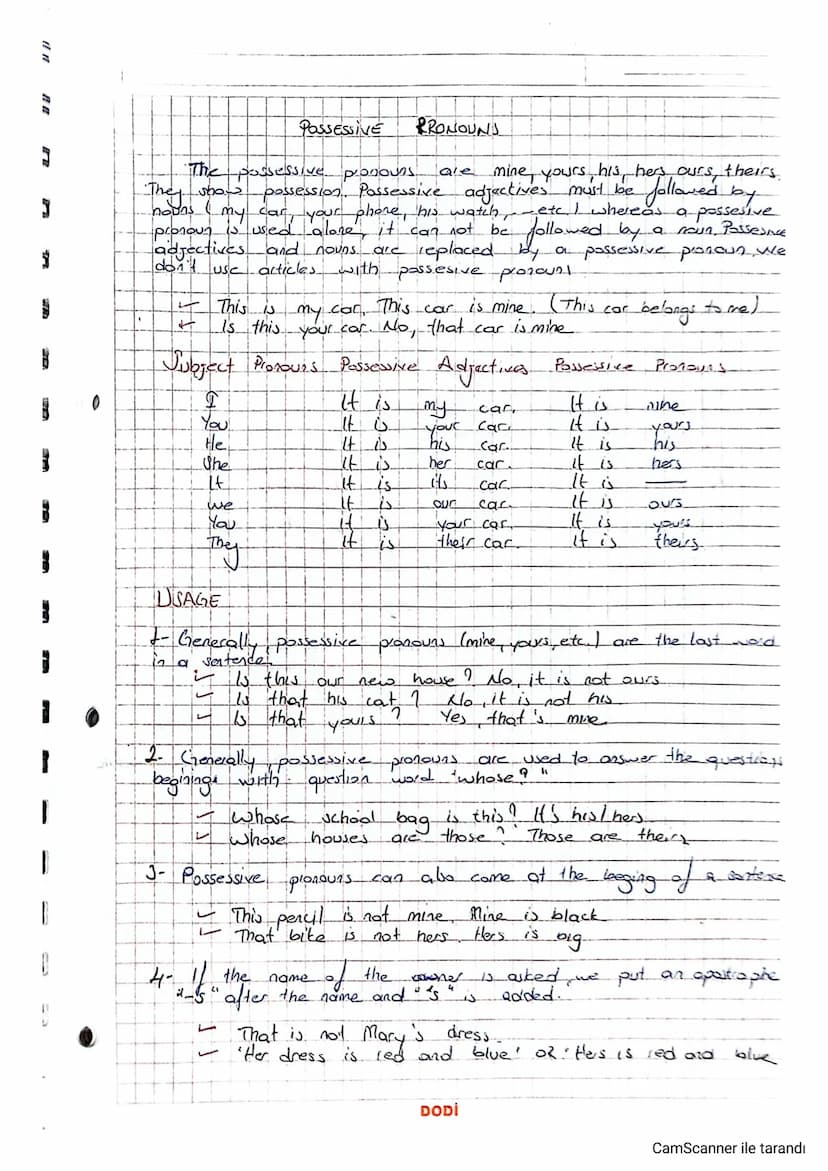 POSSESSIVE PRONOUNS
The possessive pronouns are mine, yours, his, hers ours, theirs.
They show possession. Possessive adjectives must be followed by
nouns ( my car, your phone, his watch, --etc.) whereas a possesive
pronoun is used alone, it can not be followed by a noun. Possesive
adjectives and nouns are replaced by a possesive pronoun. We
don't use articles with possesive pronoun.
This is my car. This car is mine. (This car belongs to me)
Is this your car. No, that car is mine
Subject Pronouns Possessive Adjectives Possessive Pronouns
I It is my car. It is mine
You It is your car. It is yours
He It is his car. It is his
She It is her car. It is hers
It It is its car. It is ——
we It is our car. It is ours
You it is your car. It is yours
They It is their car. It is theirs.
USAGE
1- Generally, possessive pronouns (mine, yours, etc.) are the last word
in a sentence.
Is this our new house? No, it is not ours
Is that his cat? No, it is not his
Is that yours? Yes, that's mine
2- Generally, possessive pronouns are used to answer the questions
beginings with question word "whose?"
Whose school bag is this? It's his/hers
Whose houses are those? Those are theirs
3- Possessive pronouns can also come at the beging of a sentence
This pencil is not mine. Mine is black
That bike is not hers. Hers is big
4- If the name of the owner is asked, we put an apostrophe
"-s" after the name and "'s" is added.
That is not Mary's dress.
'Her dress is red and blue' OR 'Hers is red and blue
DODİ
CamScanner ile tarandı